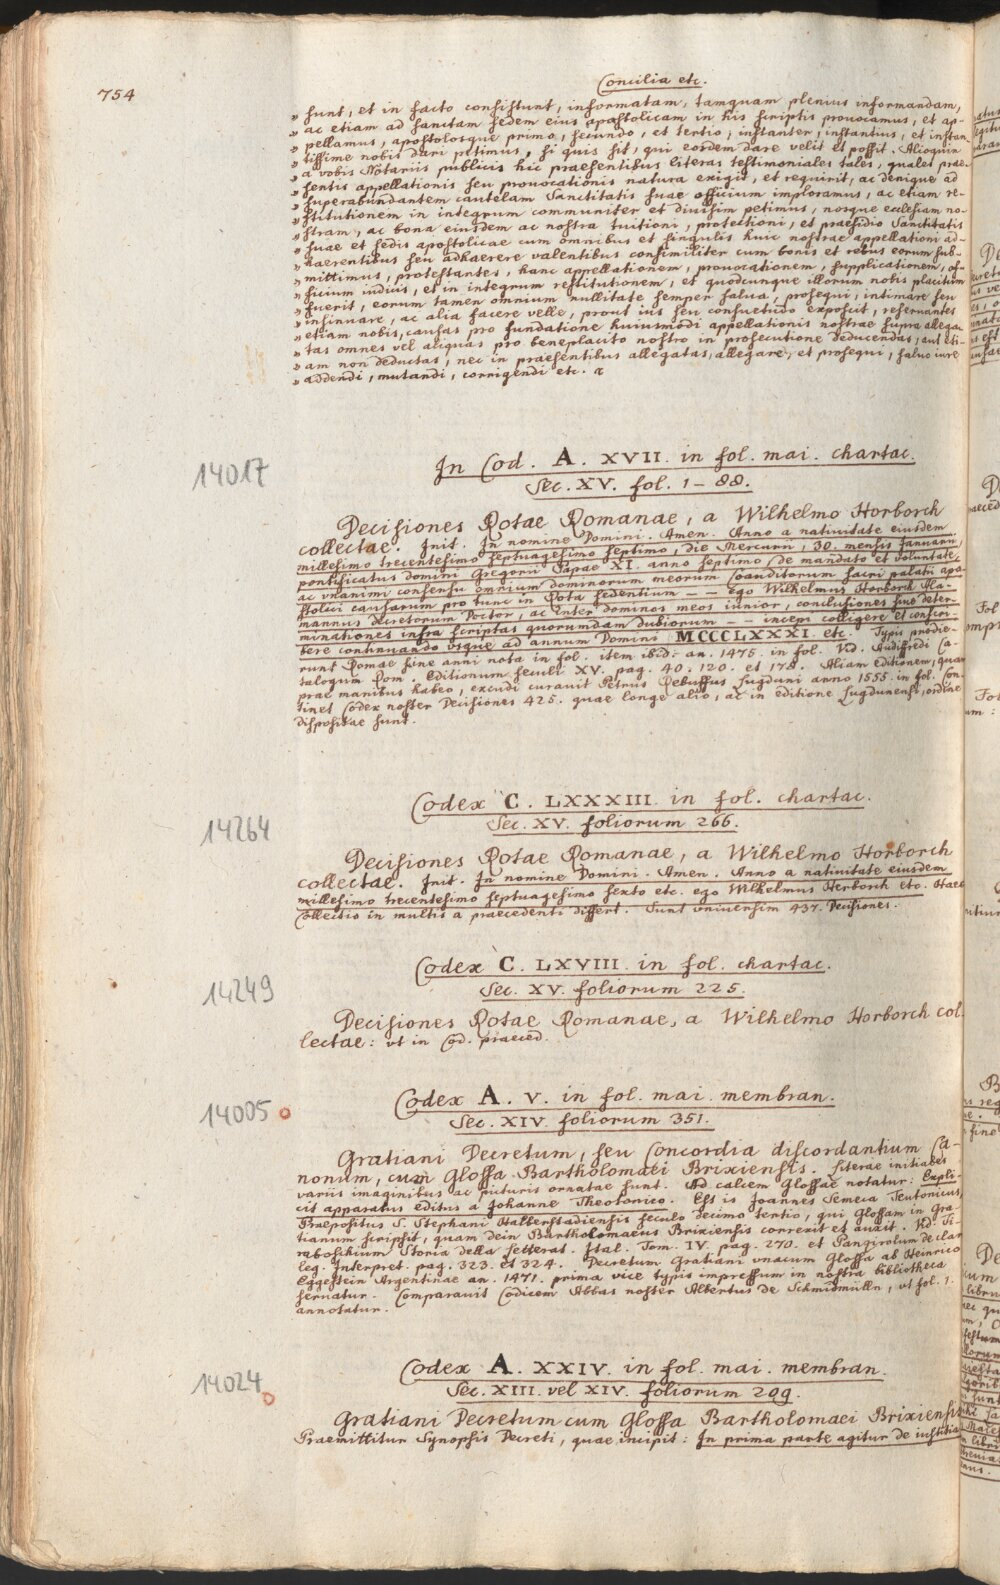 754
Concilia etc.
» sunt, et in facto consistunt, informatam, tamquam plenius informandam,
» ac etiam ad sanctam sedem eius apostolicam in his scriptis prouocamus, et ap-
» pellamus, apostolosque primo, secundo, et tertio, instanter, instantius, et instan
» tissime nobis dari petimus, si quis sit, qui eosdem dare velit et possit. Alioquin
» a vobis Notariis publicis hic praesentibus literas testimoniales tales, quales prae-
» sentis appellationis seu prouocationis natura exigit, et requirit, ac denique ad
» superabundantem cautelam Sanctitatis suae officium imploramus, ac etiam re-
» stitutionem in integrum communiter et diuisim petimus, nosque ecclesiam no-
» stram, ac bona eiusdem ac nostra tuitioni, protectioni, et praesidio Sanctitatis
» suae et sedis apostolicae cum omnibus et singulis huic nostrae appellationi ad-
» haerentibus seu adhaerere valentibus consimiliter cum bonis et rebus eorum sub-
» mittimus, protestantes, hanc appellationem, prouocationem, supplicationem, of-
» ficium iudicis, et in integrum restitutionem, et quodcunque illorum nobis placitum
» fuerit, eorum tamen omnium nullitate semper salua, prosequi, intimare seu
» insinuare, ac alia facere velle, prout ius seu consuetudo exposcit, reseruantes
» etiam nobis, causas pro fundatione huiusmodi appellationis nostrae supra allega
» tas omnes vel aliquas pro beneplacito nostro in prosecutione deducendas, aut eti-
» am non deductas, nec in praesentibus allegatas, allegare, et prosequi, saluo iure
» addendi, mutandi, corrigendi etc.
14017
In Cod. A. XVII. in fol. mai. chartac.
Sec. XV. fol. 1-88.
Decisiones Rotae Romanae, a Wilhelmo Horborch
collectae. Init. In nomine Domini. Amen. Anno a natiuitate eiusdem
millesimo trecentesimo septuagesimo septimo, die Mercurii, 30. mensis Ianuarii,
pontificatus domini Gregorii Papae XI. anno septimo, de mandato et voluntate,
ac vnanimi consensu omnium dominorum meorum Coauditorum sacri palatii apo-
stolici causarum pro tunc in Rota sedentium - - Ego Wilhelmus Horborch Ala-
mannus decretorum Doctor, ac inter dominos meos iunior, conclusiones siue deter-
minationes infra scriptas quorumdam dubiorum - - incepi colligere et conscri-
bere continuando vsque ad annum Domini MCCCLXXXI. etc. Typis prodie-
runt Romae sine anni nota in fol. item ibid. an. 1475. in fol. Vid. Audiffredi Ca-
talogum Rom. Editionum seculi XV. pag. 40. 120. et 178. Aliam editionem, quam
prae manibus habeo, excudi curauit Petrus Rebuffus Lugduni anno 1555. in fol. Con-
tinet Codex noster Decisiones 425. quae longe alio, ac in editione Lugdunensi, ordine
dispositae sunt.
14264
Codex C. LXXXIII. in fol. chartac.
Sec. XV. foliorum 266.
Decisiones Rotae Romanae, a Wilhelmo Horborch
collectae. Init. In nomine Domini. Amen. Anno a natiuitate eiusdem
millesimo trecentesimo septuagesimo sexto etc. ego Wilhelmus Herborch etc. Haec
Collectio in multis a praecedenti differt. Sunt vniuersim 437. Decisiones.
14249
Codex C. LXVIII. in fol. chartac.
Sec. XV. foliorum 225.
Decisiones Rotae Romanae, a Wilhelmo Horborch col
lectae: vt in Cod. praeced.
14005
Codex A. V. in fol. mai. membran.
Sec. XIV. foliorum 351.
Gratiani Decretum, seu Concordia discordantium Ca-
nonum, cum Glossa Bartholomaei Brixiensis. Literae initiales
variis imaginibus ac picturis ornatae sunt. Ad calcem Glossae notatur: Expli-
cit apparatus editus a Johanne Theotonico. Est is Joannes Semeca Teutonicus,
Praepositus S. Stephani Halberstadiensis seculo decimo tertio, qui Glossam in Gra-
tianum scripsit, quam dein Bartholomaeus Brixiensis correxit et auxit. Vid. Ti-
raboschium Storia della Letterat. Ital. Tom. IV. pag. 270. et Pangirolum de clar
leg. Interpret. pag. 323. et 324. Decretum Gratiani vnacum Glossa ab Heinrico
Eggestein Argentinae an. 1471. prima vice typis impressum in nostra bibliotheca
seruatur. Comparauit Codicem Abbas noster Albertus de Schmidmülln, vt fol. 1.
annotatur.
14024
Codex A. XXIV. in fol. mai. membran.
Sec. XIII. vel XIV. foliorum 299.
Gratiani Decretum cum Glossa Bartholomaei Brixiensis
Praemittitur Synopsis Decreti, quae incipit: In prima parte agitur de iustitia